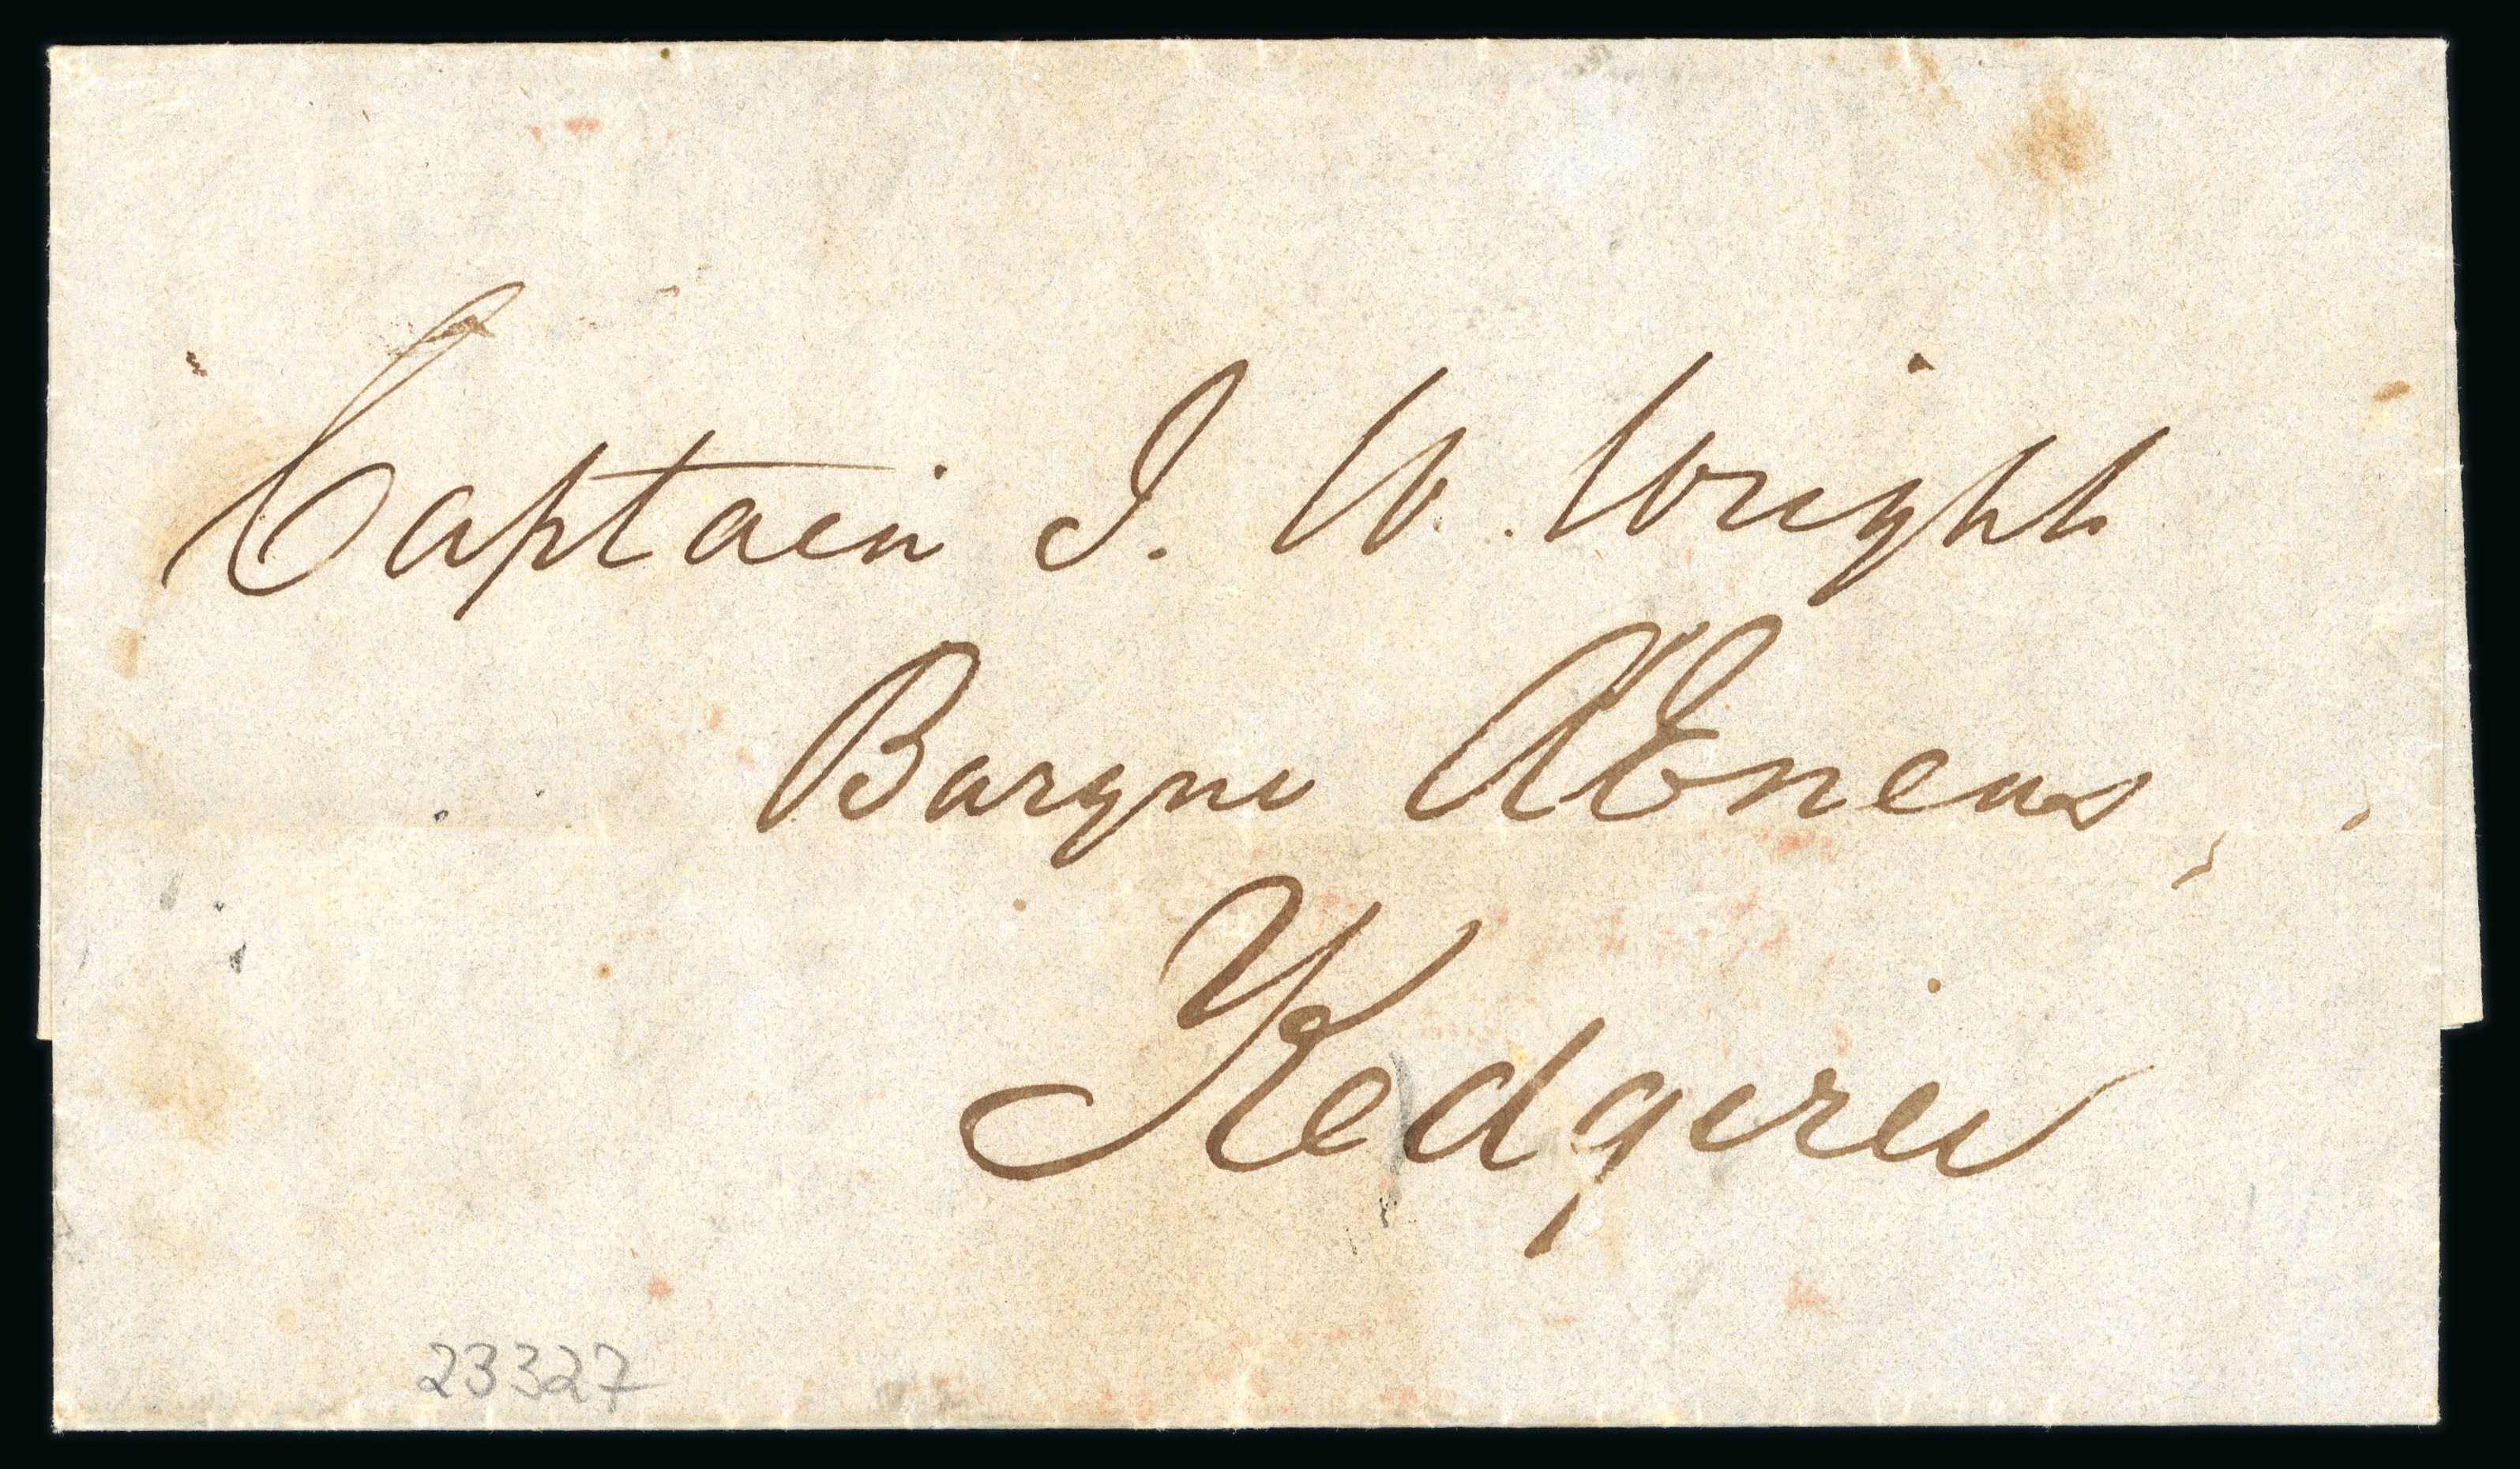 Captain J. W. Wright
Barque AEneas,
Kedgeree
23327